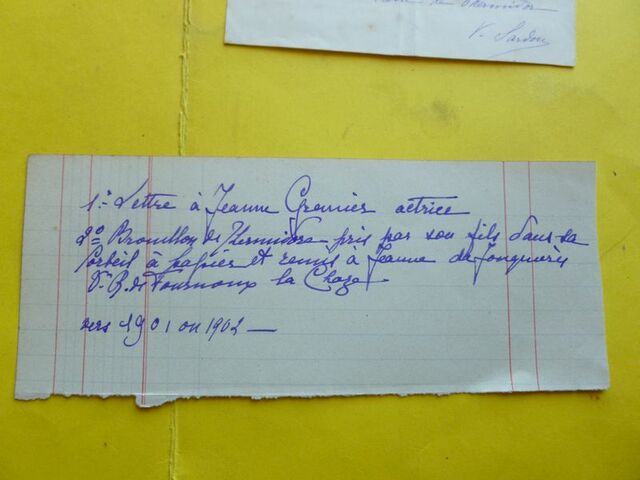 de Thermidor
V. Sardou
1º Lettre à Jeanne Granier actrice
2º Brouillon de Thermidor pris par son fils dans sa
corbeil à papier et remis à Jeanne de Jonquières
Vᵗᵉ B. de Fournoux la Chaze
vers 1901 ou 1902 —